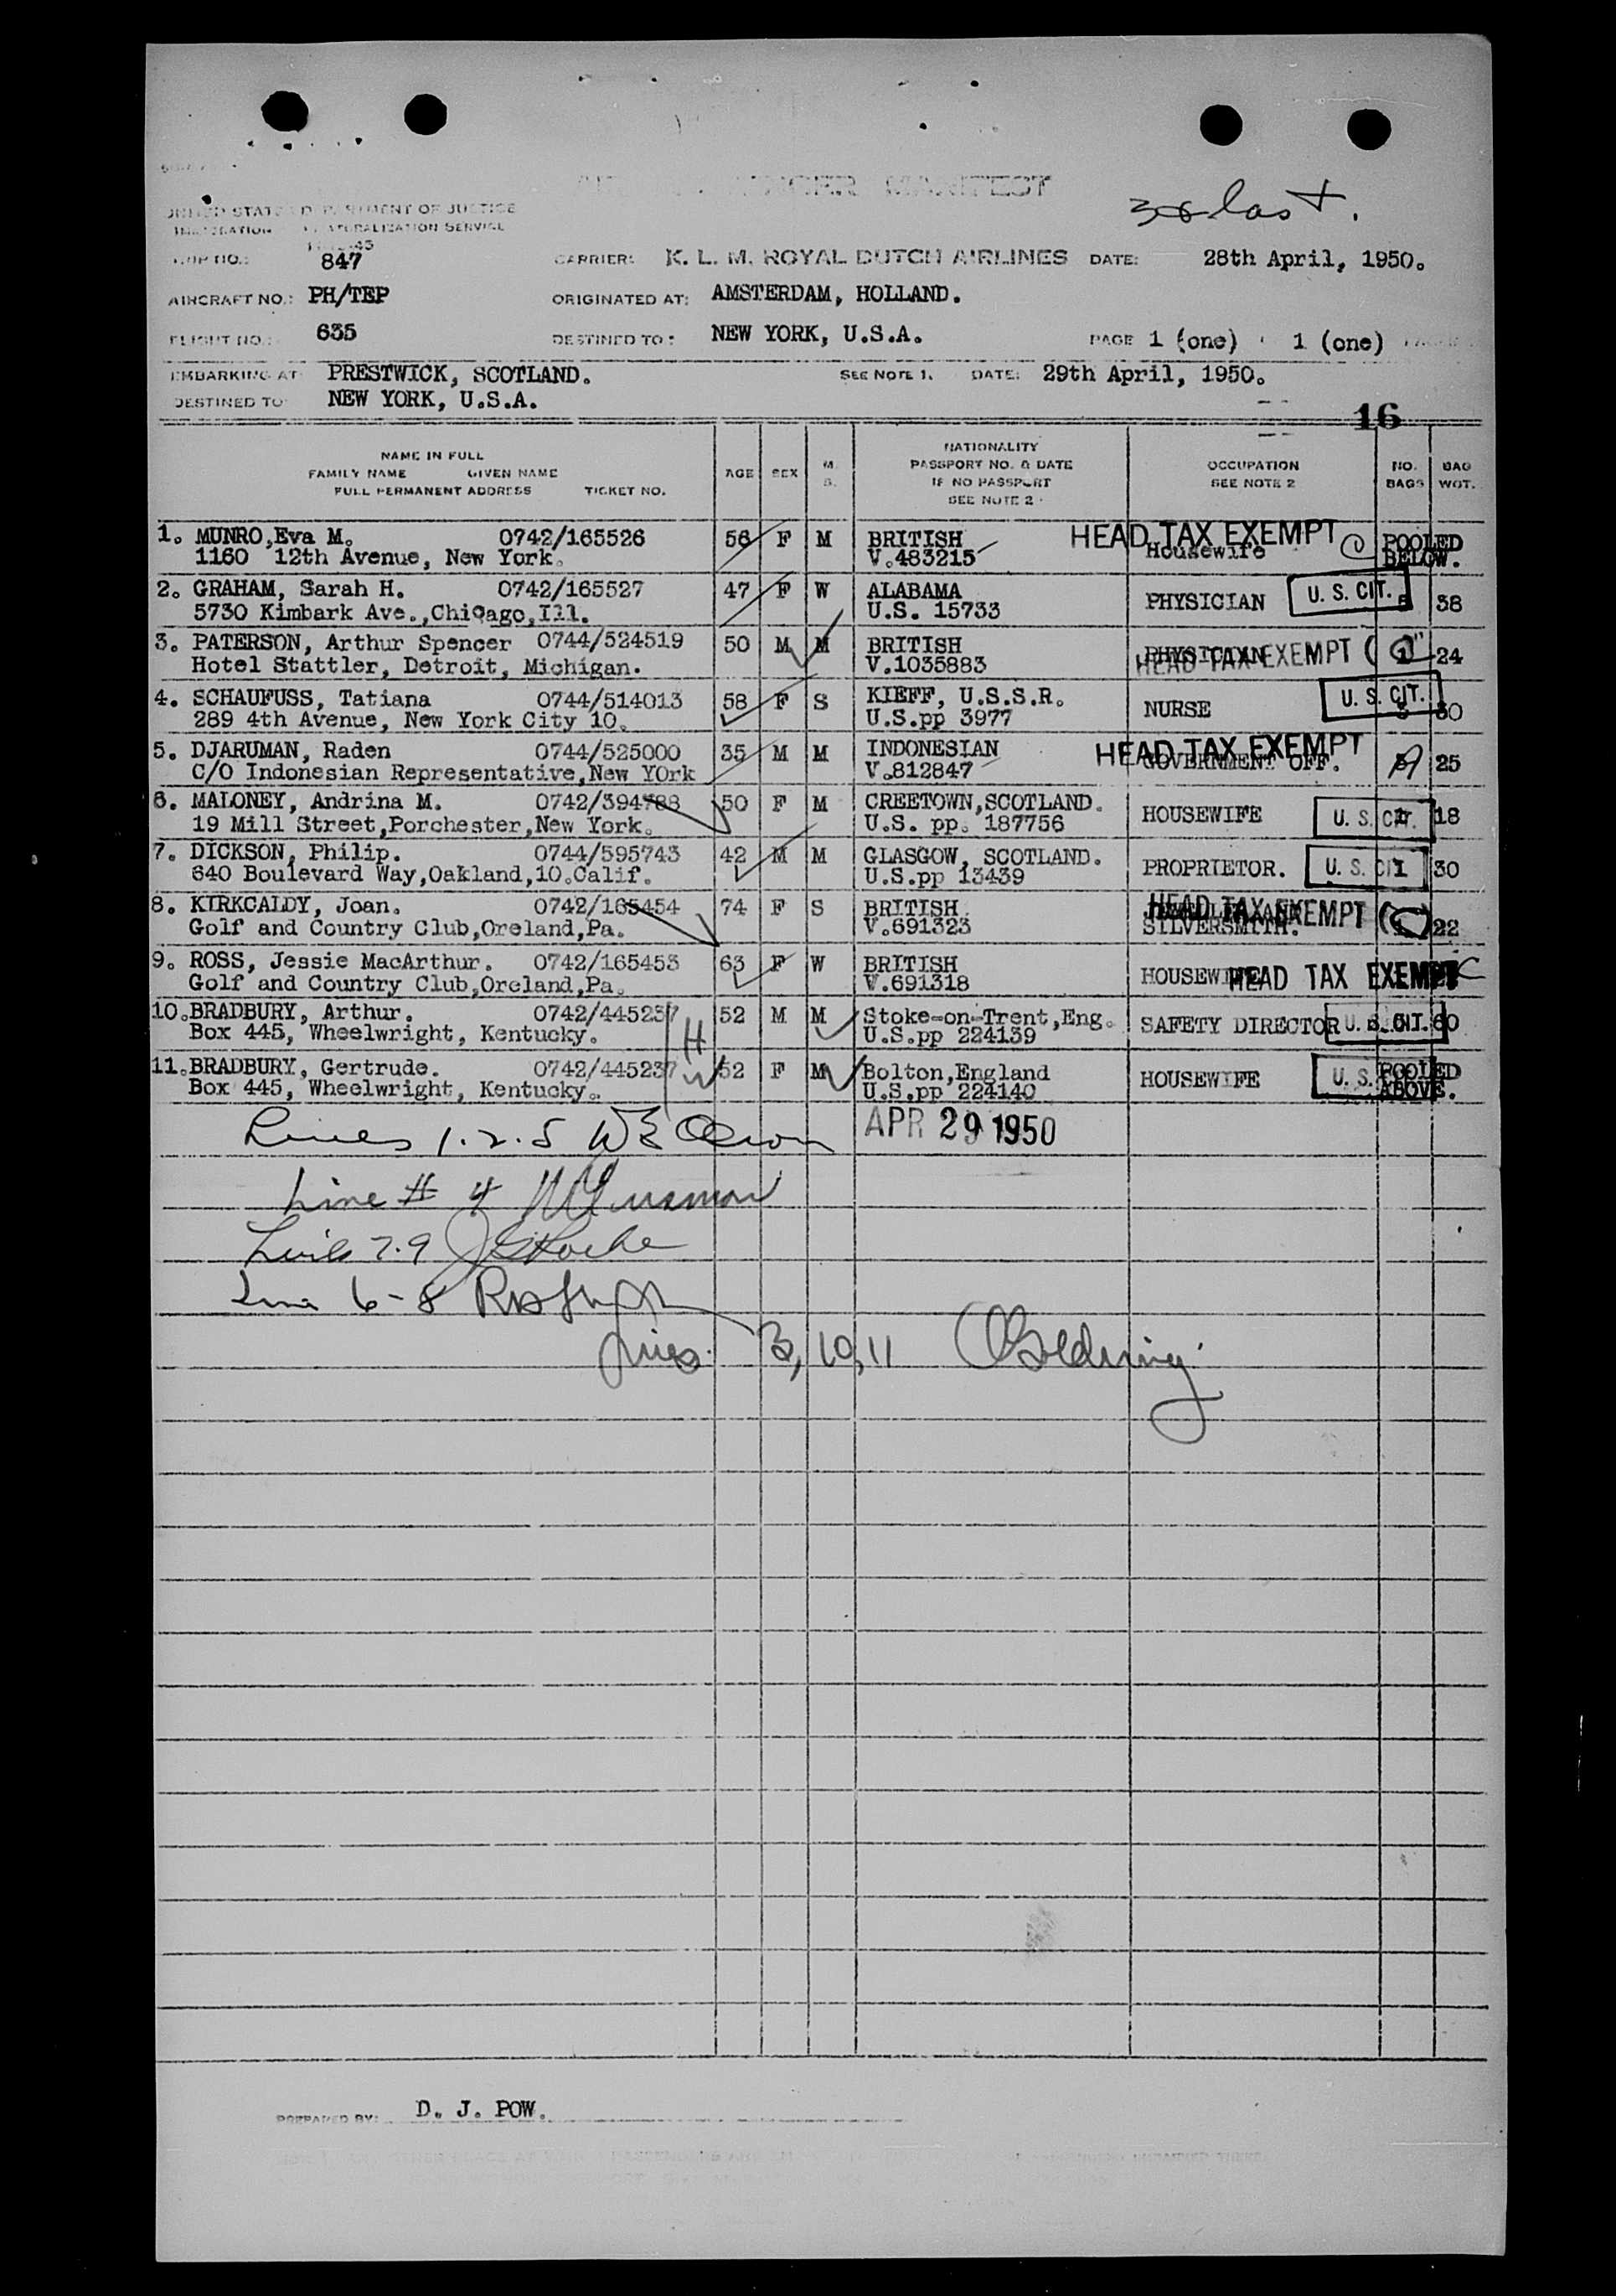 MANIFEST
last.
UNITED STATES DEPARTMENT OF JUSTICE
IMMIGRATION NATURALIZATION SERVICE
TRIP NO.: 847 CARRIER: K. L. M. ROYAL DUTCH AIRLINES DATE: 28th April, 1950.
AIRCRAFT NO.: PH/TEP ORIGINATED AT: AMSTERDAM, HOLLAND.
FLIGHT NO.: 635 DESTINED TO: NEW YORK, U.S.A. PAGE 1 (one) 1 (one)
EMBARKING AT PRESTWICK, SCOTLAND. SEE NOTE 1. DATE: 29th April, 1950.
DESTINED TO NEW YORK, U.S.A.
16
NAME IN FULL
FAMILY NAME GIVEN NAME
FULL PERMANENT ADDRESS TICKET NO. AGE SEX M. S. NATIONALITY PASSPORT NO. & DATE IF NO PASSPORT SEE NOTE 2 OCCUPATION SEE NOTE 2 NO. BAGS BAG WGT.
1. MUNRO,Eva M. 0742/165526 56 F M BRITISH HEAD TAX EXEMPT Housewife POOLED
1160 12th Avenue, New York. V.483215 BELOW.
2. GRAHAM, Sarah H. 0742/165527 47 F W ALABAMA PHYSICIAN U. S. CIT. 38
5730 Kimbark Ave.,Chicago,Ill. U.S. 15733
3. PATERSON, Arthur Spencer 0744/524519 50 M M BRITISH PHYSICIAN HEAD TAX EXEMPT 1 24
Hotel Stattler, Detroit, Michigan. V.1035883
4. SCHAUFUSS, Tatiana 0744/514013 58 F S KIEFF, U.S.S.R. NURSE U. S. CIT.
289 4th Avenue, New York City 10. U.S.pp 3977
5. DJARUMAN, Raden 0744/525000 35 M M INDONESIAN HEAD TAX EXEMPT GOVERNMENT OFF. 25
C/O Indonesian Representative,New YOrk V.812847
6. MALONEY, Andrina M. 0742/394788 50 F M CREETOWN,SCOTLAND. HOUSEWIFE U. S. CIT. 18
19 Mill Street,Porchester,New York. U.S. pp. 187756
7. DICKSON, Philip. 0744/595743 42 M M GLASGOW, SCOTLAND. PROPRIETOR. U. S. CIT 1 30
640 Boulevard Way,Oakland,10.Calif. U.S.pp 13439
8. KIRKCALDY, Joan. 0742/165454 74 F S BRITISH HEAD TAX EXEMPT SILVERSMITH. 22
Golf and Country Club,Oreland,Pa. V.691323
9. ROSS, Jessie MacArthur. 0742/165453 63 F W BRITISH HOUSEWIFE HEAD TAX EXEMPT
Golf and Country Club,Oreland,Pa. V.691318
10.BRADBURY, Arthur. 0742/445237 52 M M Stoke-on-Trent,Eng. SAFETY DIRECTOR U. S. CIT. 60
Box 445, Wheelwright, Kentucky. H U.S.pp 224139
11.BRADBURY, Gertrude. 0742/445237 w 52 F M Bolton,England HOUSEWIFE U. S. POOLED
Box 445, Wheelwright, Kentucky. U.S.pp 224140 ABOVE.
Lines 1.2.5
APR 29 1950
Line # 4
Lines 7.9
Line 6-8
Lines 3,10,11
PREPARED BY: D. J. POW.